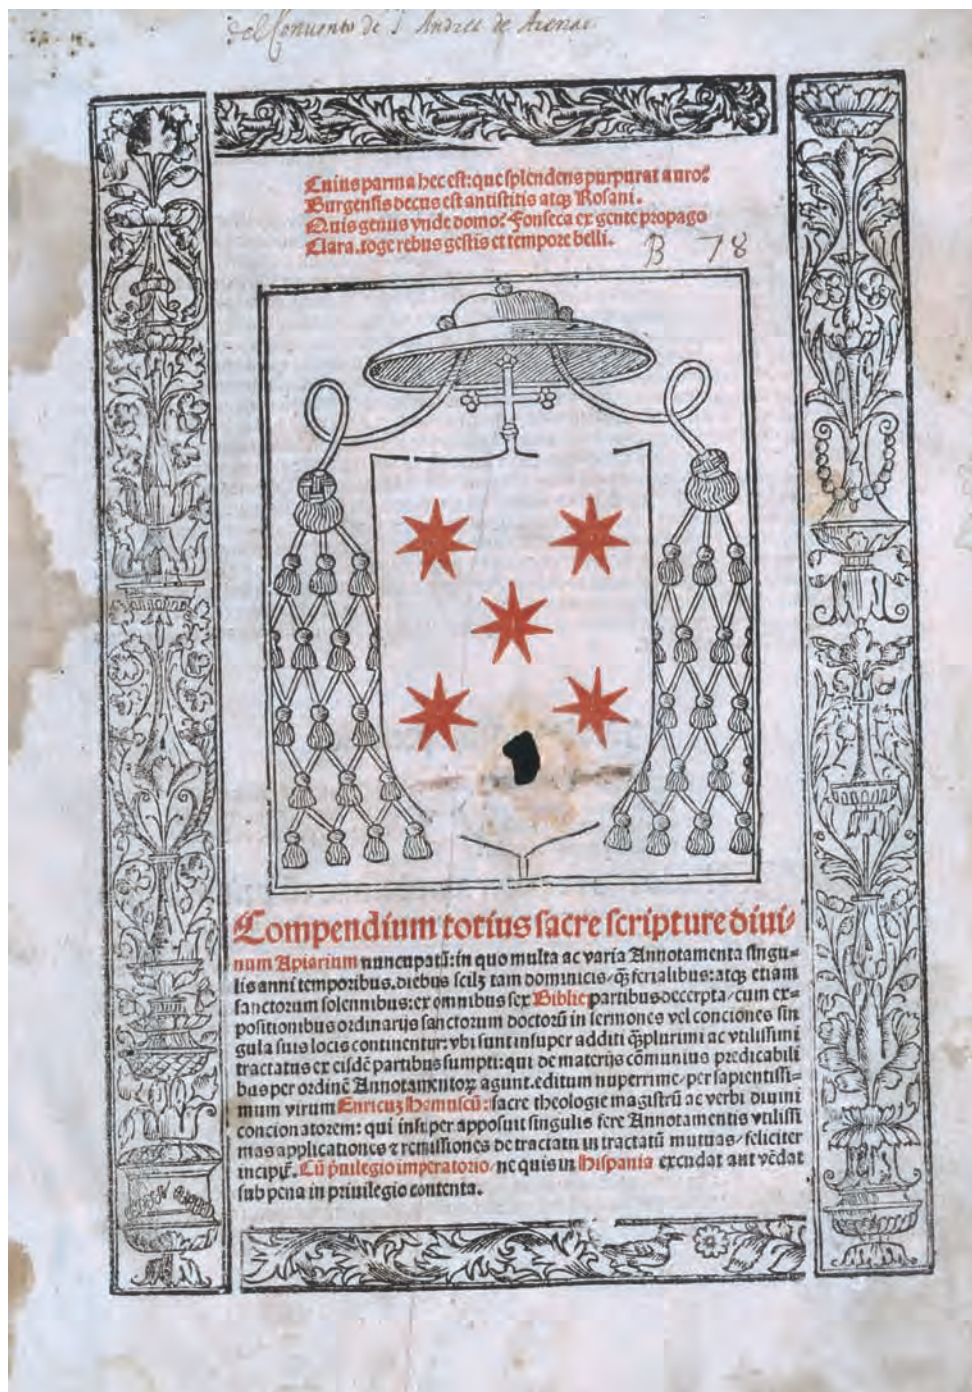 del Convento de S. Andres de Arenas
Cuius parma hec est: que splendens purpurat auro?
Burgensis decus est antistitis atqꝫ Rosani.
Quis genus vnde domo? Fonseca ex gente propago
Clara. toge rebus gestis et tempore belli.
B 78
Compendium totius sacre scripture diui⸗
num Apiarium nuncupatū: in quo multa ac varia Annotamenta singu⸗
lis anni temporibus. diebus scilꝫ tam dominicis/ q̄ꝫ ferialibus: atqꝫ etiam
sanctorum solennibus: ex omnibus sex Biblie partibus decerpta/ cum ex⸗
positionibus ordinarijs sanctorum doctorū in sermones vel conciones sin
gula suis locis continentur: vbi sunt insuper additi q̄ꝫplurimi ac vtilissimi
tractatus ex eisdē partibus sumpti: qui de materijs cōmunius predicabili
bus per ordinē Annotamentoꝝ agunt. editum nuperrime/ per sapientissi⸗
mum virum Enricuꝫ Hamuscū: sacre theologie magistrū ac verbi diuini
concionatorem: qui insuper apposuit singulis fere Annotamentis vtilissi
mas applicationes ⁊ remissiones de tractatu in tractatū mutuas/ feliciter
incipit. Cū priuilegio imperatorio/ ne quis in Hispania excudat aut vēdat
sub pena in priuilegio contenta.